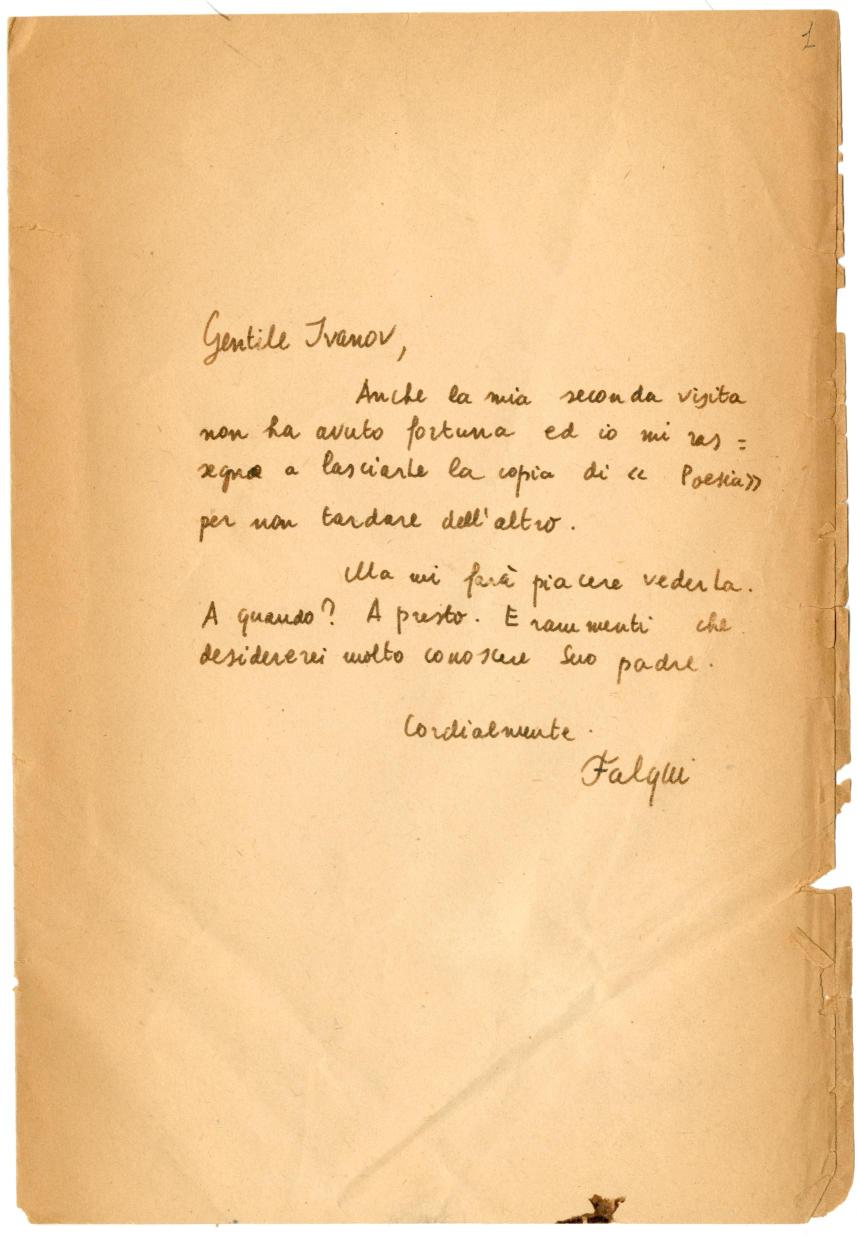 1
Gentile Ivanov,
Anche la mia seconda visita
non ha avuto fortuna ed io mi ras=
segno a lasciarle la copia di « Poesia»
per non tardare dell'altro.
Ma mi farà piacere vederla.
A quando? A presto. E rammenti che
desidererei molto conoscere Suo padre.
Cordialmente.
Falqui